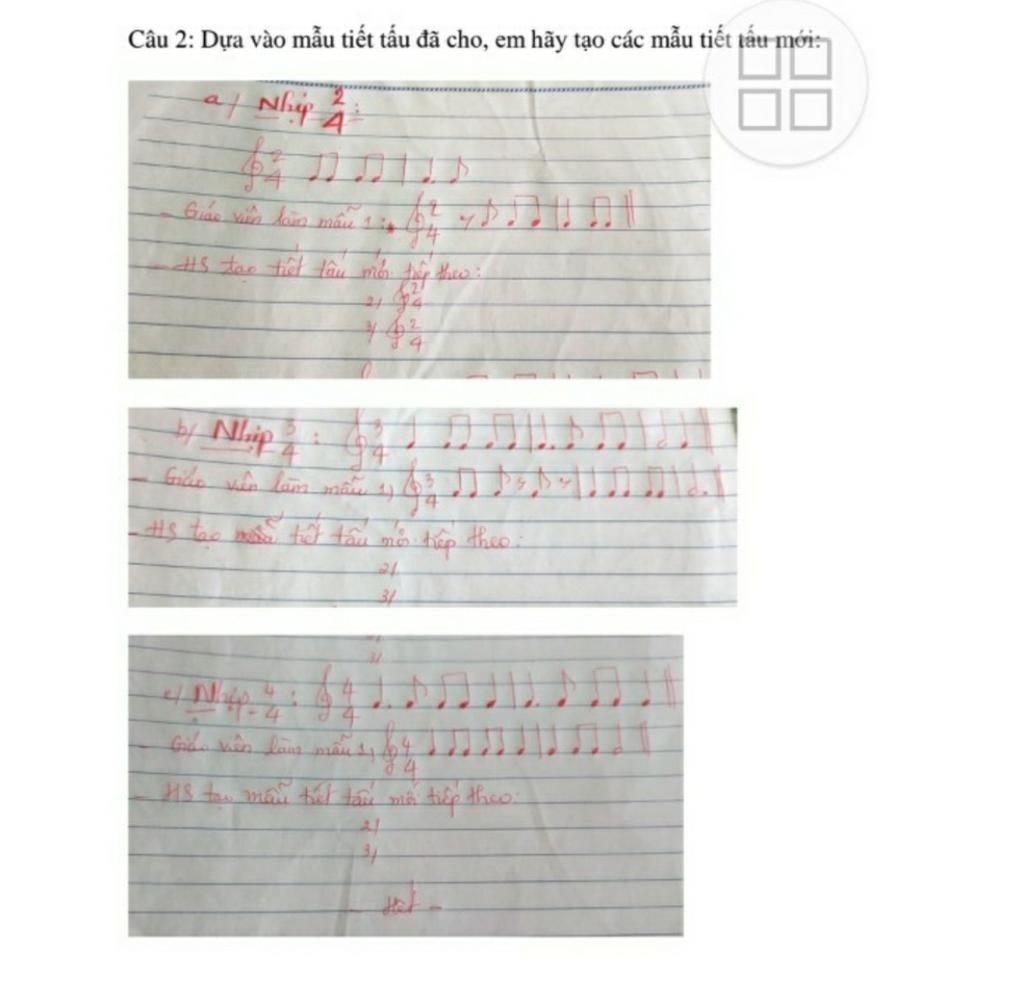 Câu 2: Dựa vào mẫu tiết tấu đã cho, em hãy tạo các mẫu tiết tấu mới:
a/ Nhịp 2/4:
2/4
- Giáo viên làm mẫu 1: 2/4
- HS tạo tiết tấu mới tiếp theo:
2/ 2/4
3/ 2/4
b/ Nhịp 3/4 : 3/4
- Giáo viên làm mẫu 1/ 3/4
- HS tạo tiết tấu mới tiếp theo:
2/
3/
3/
c/ Nhịp 4/4 : 4/4
- Giáo viên làm mẫu 1/ 4/4
- HS tạo mẫu tiết tấu mới tiếp theo:
2/
3/
- Hết -